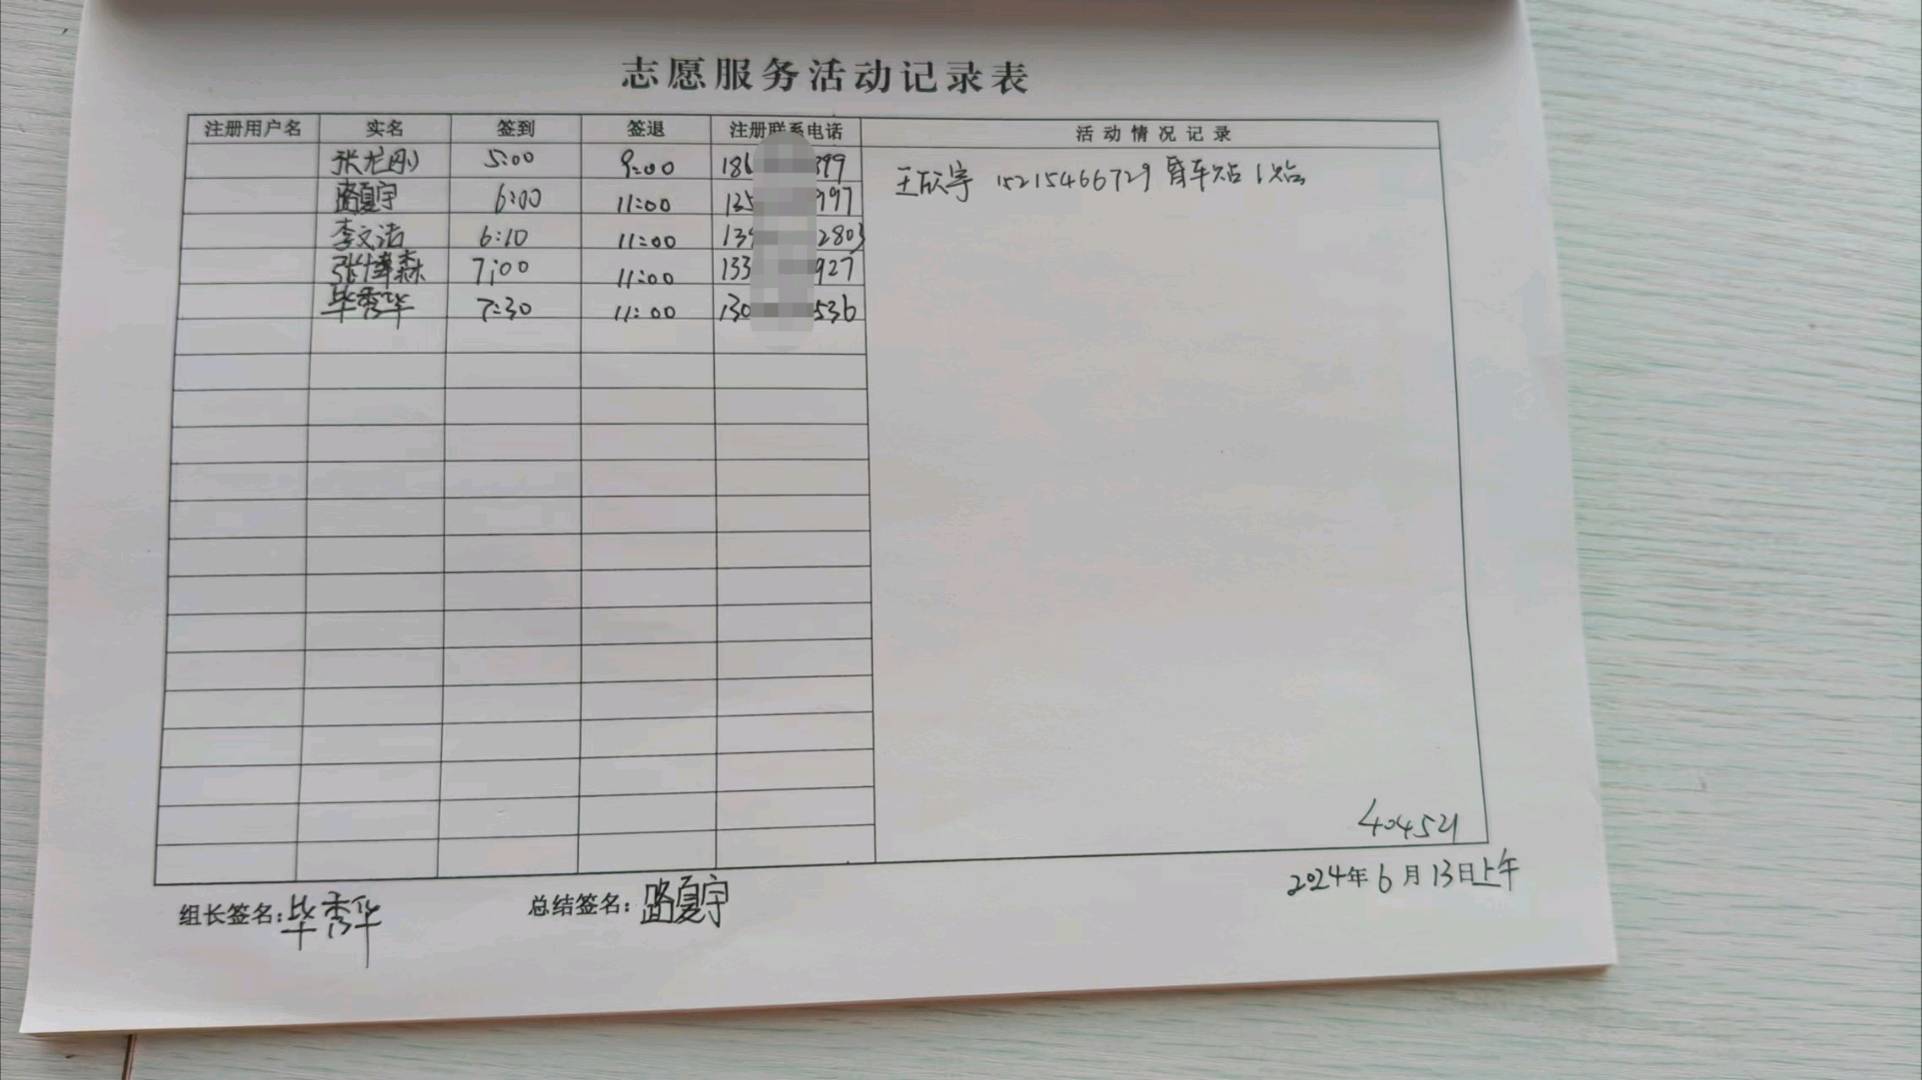 志愿服务活动记录表
注册用户名 实名 签到 签退 注册联系电话 活动情况记录
张龙刚 5:00 9:00 186 399
路夏宇 6:00 11:00 135 997
李文洁 6:10 11:00 139 2803
张博森 7:00 11:00 133 927
毕秀华 7:30 11:00 130 536
王欣宇 15215466729 1
404521
2024年6月13日上午
组长签名:毕秀华 总结签名:路夏宇